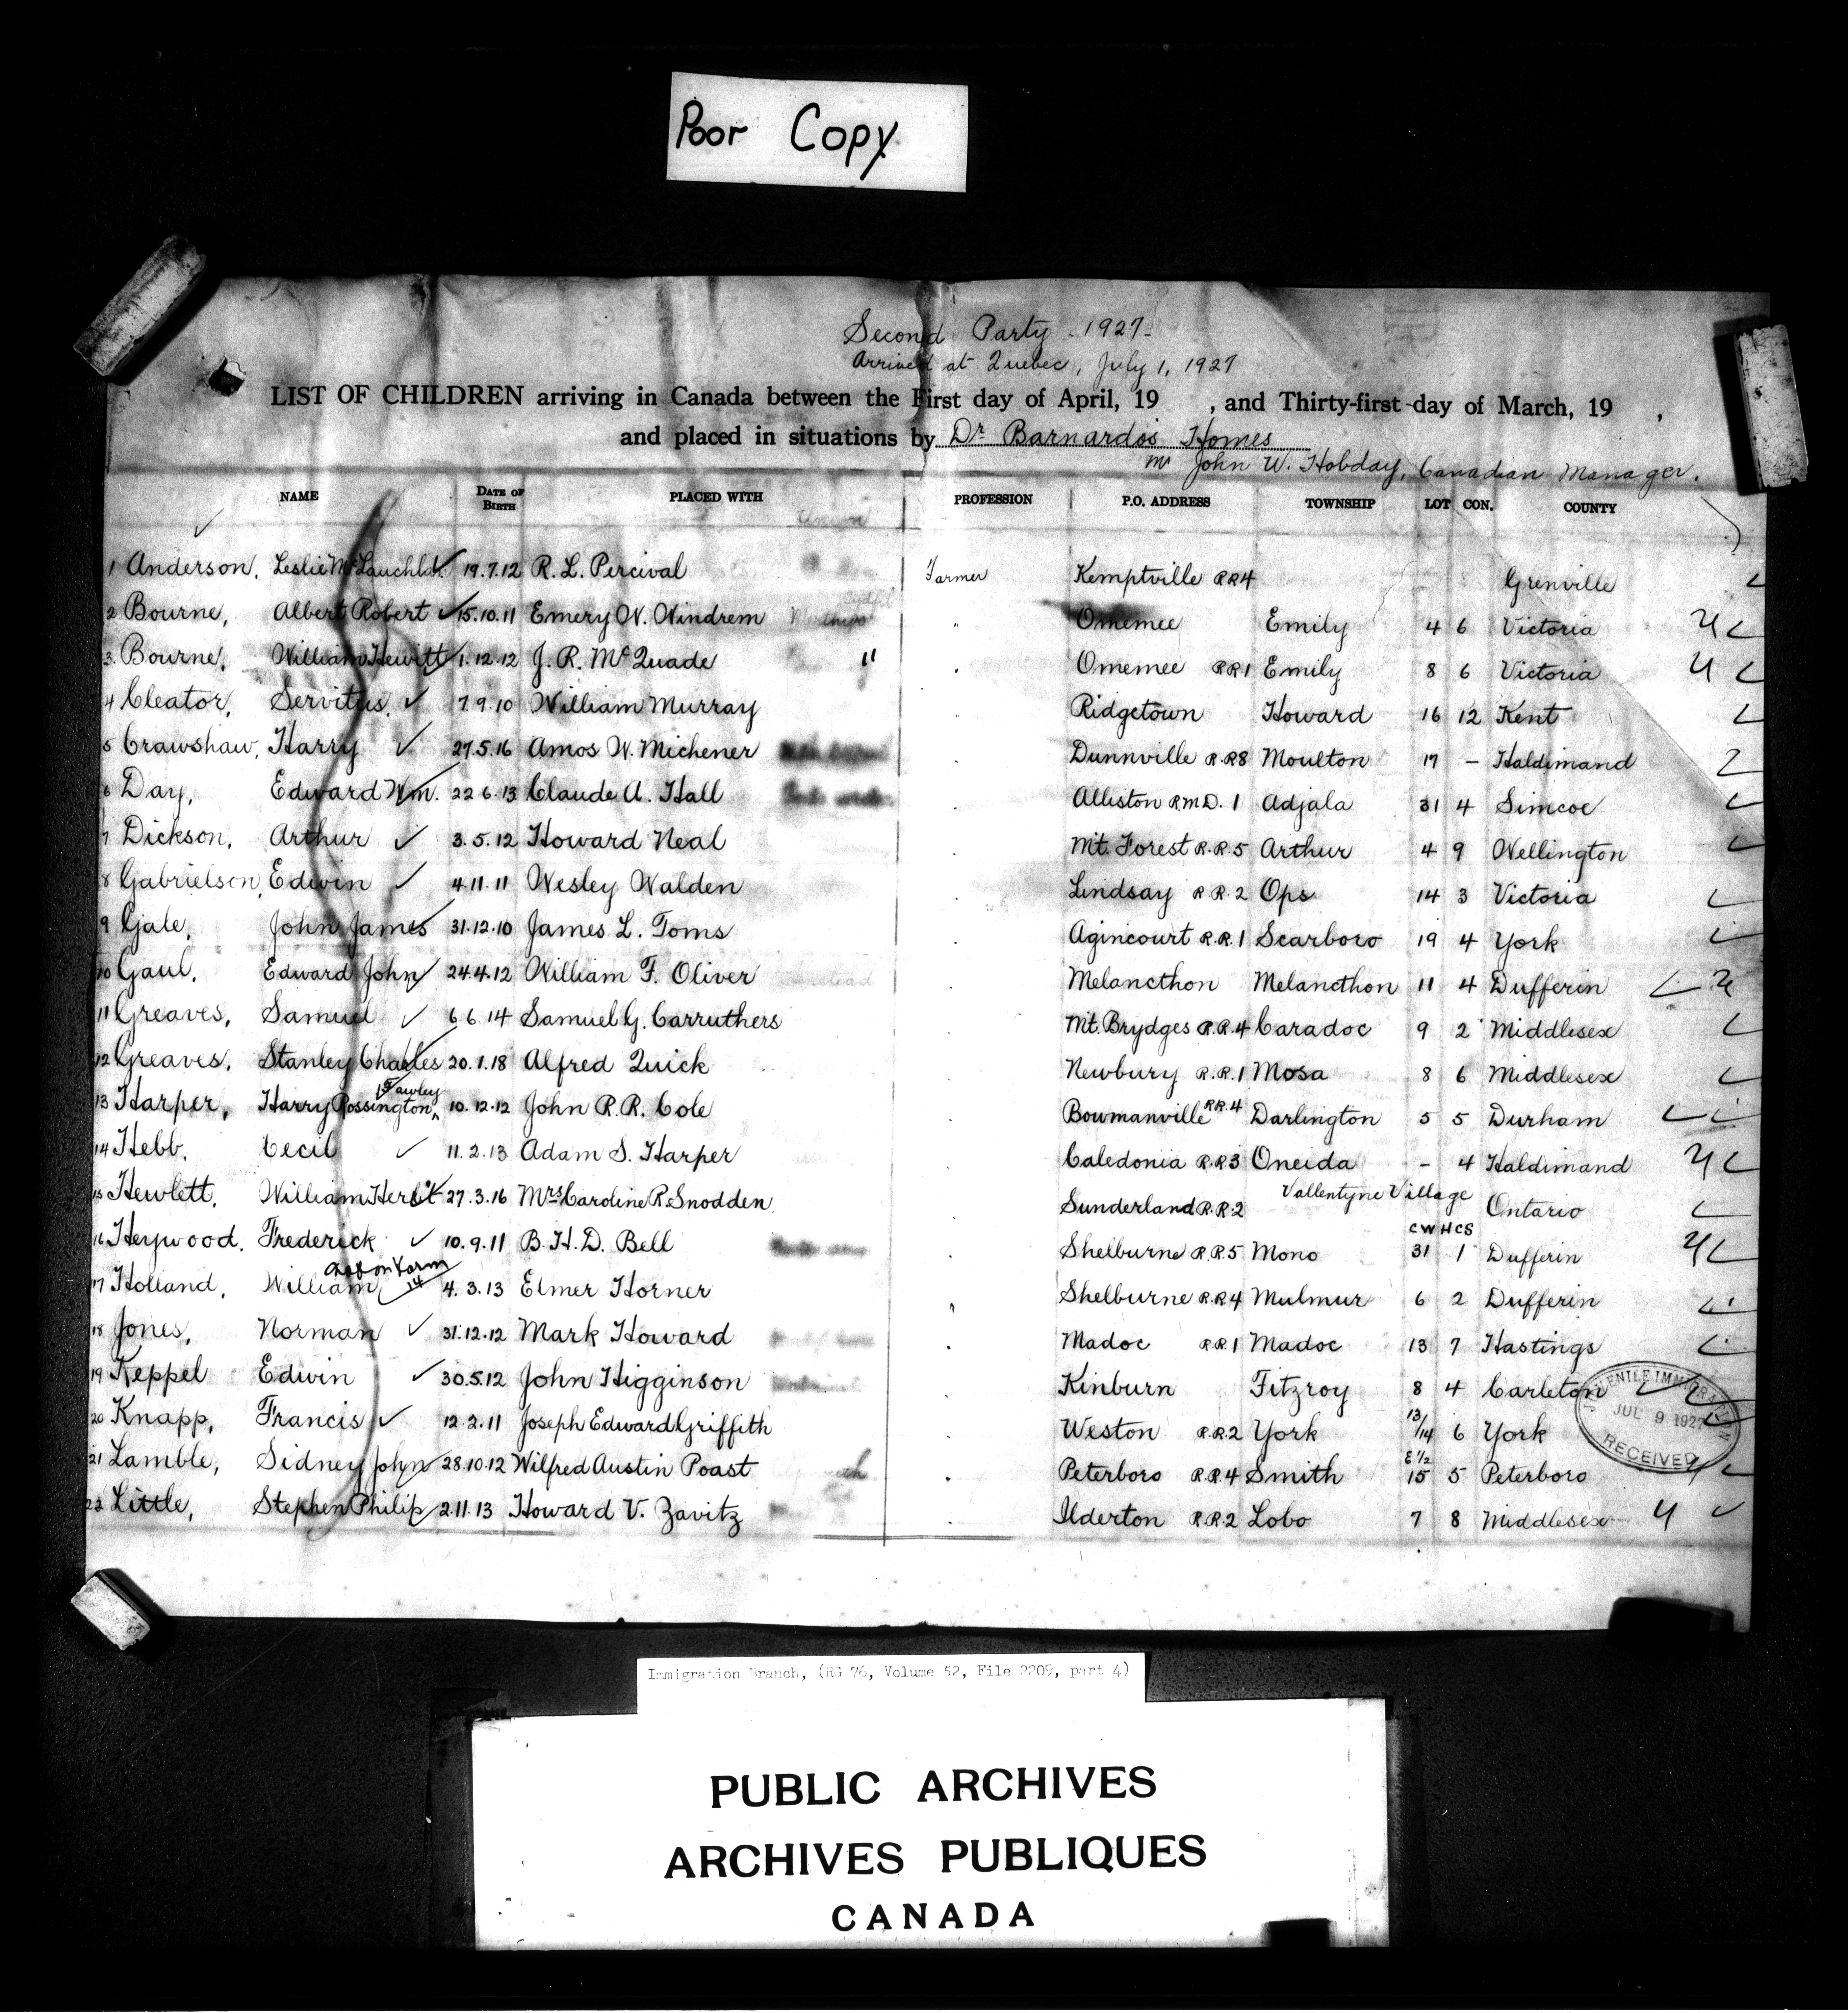 Poor Copy
Second Party - 1927-
Arrived at Quebec, July 1, 1927
LIST OF CHILDREN arriving in Canada between the First day of April, 19 , and Thirty-first day of March, 19 ,
and placed in situations by Dr Barnardo's Homes
Mr John W. Hobday, Canadian Manager.
NAME DATE OF BIRTH PLACED WITH PROFESSION P.O. ADDRESS TOWNSHIP LOT CON. COUNTY
1 Anderson, Leslie McLauchlan 19.7.12 R. L. Percival Farmer Kemptville RR4 Grenville
2 Bourne, Albert Robert 15.10.11 Emery W. Windrem " Omemee Emily 4 6 Victoria
3. Bourne, William Hewitt 1.12.12 J. R. McQuade " Omemee RR1 Emily 8 6 Victoria
4 Cleator, Servitus 7.9.10 William Murray " Ridgetown Howard 16 12 Kent
5 Crawshaw, Harry 27.5.16 Amos W. Michener " Dunnville R.R8 Moulton 17 - Haldimand
6 Day, Edward Wm. 22 6.13 Claude A. Hall " Alliston R.M.D. 1 Adjala 31 4 Simcoe
7 Dickson, Arthur 3.5.12 Howard Neal " Mt. Forest R.R.5 Arthur 4 9 Wellington
8 Gabrielson, Edwin 4.11.11 Wesley Walden " Lindsay R.R.2 Ops 14 3 Victoria
9 Gale, John James 31.12.10 James L. Toms " Agincourt R.R.1 Scarboro 19 4 York
10 Gaul, Edward John 24.4.12 William F. Oliver " Melancthon Melancthon 11 4 Dufferin
11 Greaves, Samuel 6.6.14 Samuel G. Carruthers " Mt. Brydges R.R.4 Caradoc 9 2 Middlesex
12 Greaves, Stanley Charles 20.1.18 Alfred Quick " Newbury R.R.1 Mosa 8 6 Middlesex
13 Harper, Harry Rossington Fawley 10.12.12 John R.R. Cole " Bowmanville RR.4 Darlington 5 5 Durham
14 Hebb, Cecil 11.2.13 Adam S. Harper " Caledonia R.R3 Oneida - 4 Haldimand
15 Hewlett, William Herbt 27.3.16 Mrs Caroline R. Snodden " Sunderland R.R.2 Vallentyne Village Ontario
16 Heywood, Frederick 10.9.11 B.H.D. Bell " Shelburne R.R.5 Mono CWHCS 31 1 Dufferin
17 Holland, William 4.3.13 Elmer Horner " Shelburne R.R4 Mulmur 6 2 Dufferin
18 Jones, Norman 31.12.12 Mark Howard " Madoc R.R.1 Madoc 13 7 Hastings
19 Keppel Edwin 30.5.12 John Higginson " Kinburn Fitzroy 8 4 Carleton
20 Knapp, Francis 12.2.11 Joseph Edward Griffith " Weston R.R.2 York 13/14 6 York
21 Lamble, Sidney John 28.10.12 Wilfred Austin Poast " Peterboro R.R.4 Smith E½ 15 5 Peterboro
22 Little, Stephen Philip 2.11.13 Howard V. Zavitz " Ilderton R.R.2 Lobo 7 8 Middlesex
JUVENILE IMMIGRATION
JUL 9 1927
RECEIVED
Immigration Branch, (RG 76, Volume 52, File 2209, part 4)
PUBLIC ARCHIVES
ARCHIVES PUBLIQUES
CANADA